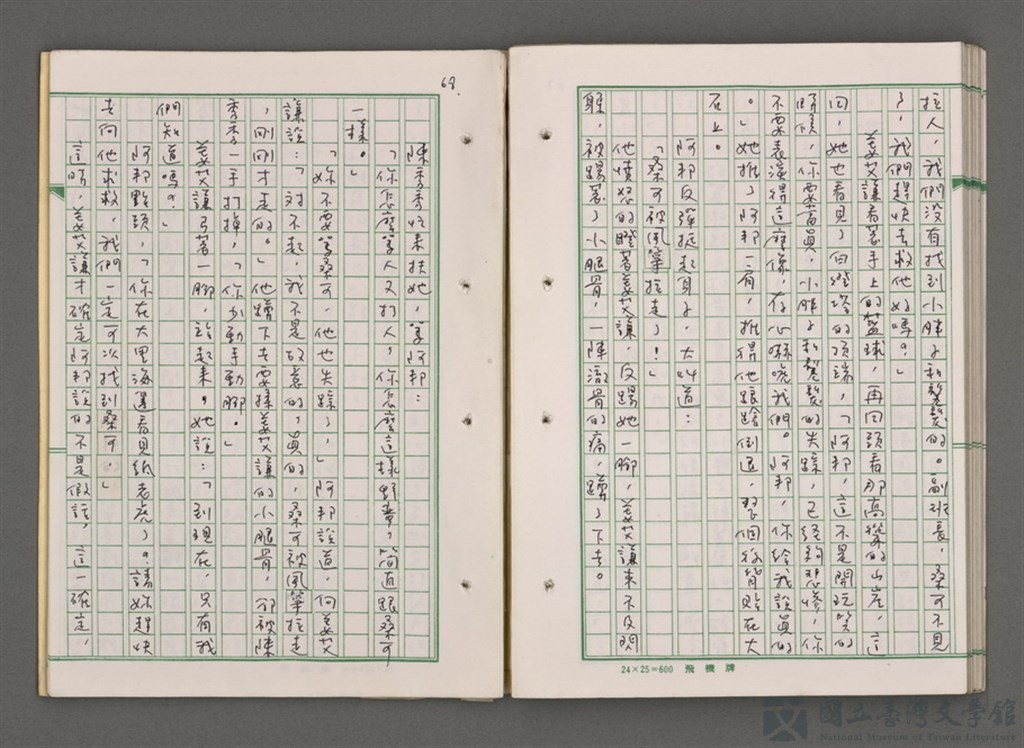 拉人，我們沒有找到小胖子和聲聲的。副班長，桑可不見
了，我們趕快去救他好嗎？」
姜艾謙看著手上的籃球，再回頭看那高聳的山崖，這
回，她也看見了白燈塔的頂端，「阿邦，這不是開玩笑的
時候，你要當真，小胖子和聲聲的失蹤，已經夠悲慘，你
不要表演得這麼像，存心嚇唬我們。阿邦，你給我說真的
。」她推了阿邦一肩，推得他踉蹌倒退，整個後背貼在大
石上。
阿邦反彈挺起身子，大叫道：
「桑可被風箏拉走了！」
他憤怒的瞪著姜艾謙，反踢她一腳，姜艾謙來不及閃
躲，被踢著了小腿骨，一陣澈骨的痛，蹲了下去。
24×25=600 飛機牌
68.
陳季季忙來扶她，罵阿邦：
「你怎麼罵人又打人，你怎麼這樣野蠻，簡直跟桑可
一樣。」
「妳不要罵桑可，他也失蹤了，」阿邦說道，向姜艾
謙說：「對不起，我不是故意的，真的，桑可被風箏拉走
，剛剛才走的。」他蹲下去要揉姜艾謙的小腿骨，卻被陳
季季一手打掉，「你別動手動腳。」
姜艾謙弓著一腳，站起來。她說：「到現在，只有我
們知道嗎？」
阿邦點頭，「你在大里海邊看見紙老虎了。請妳趕快
去向他求救，我們一定可以找到桑可。」
這時，姜艾謙才確定阿邦說的不是假話，這一確定，
國立臺灣文學館
National Museum of Taiwan Literature